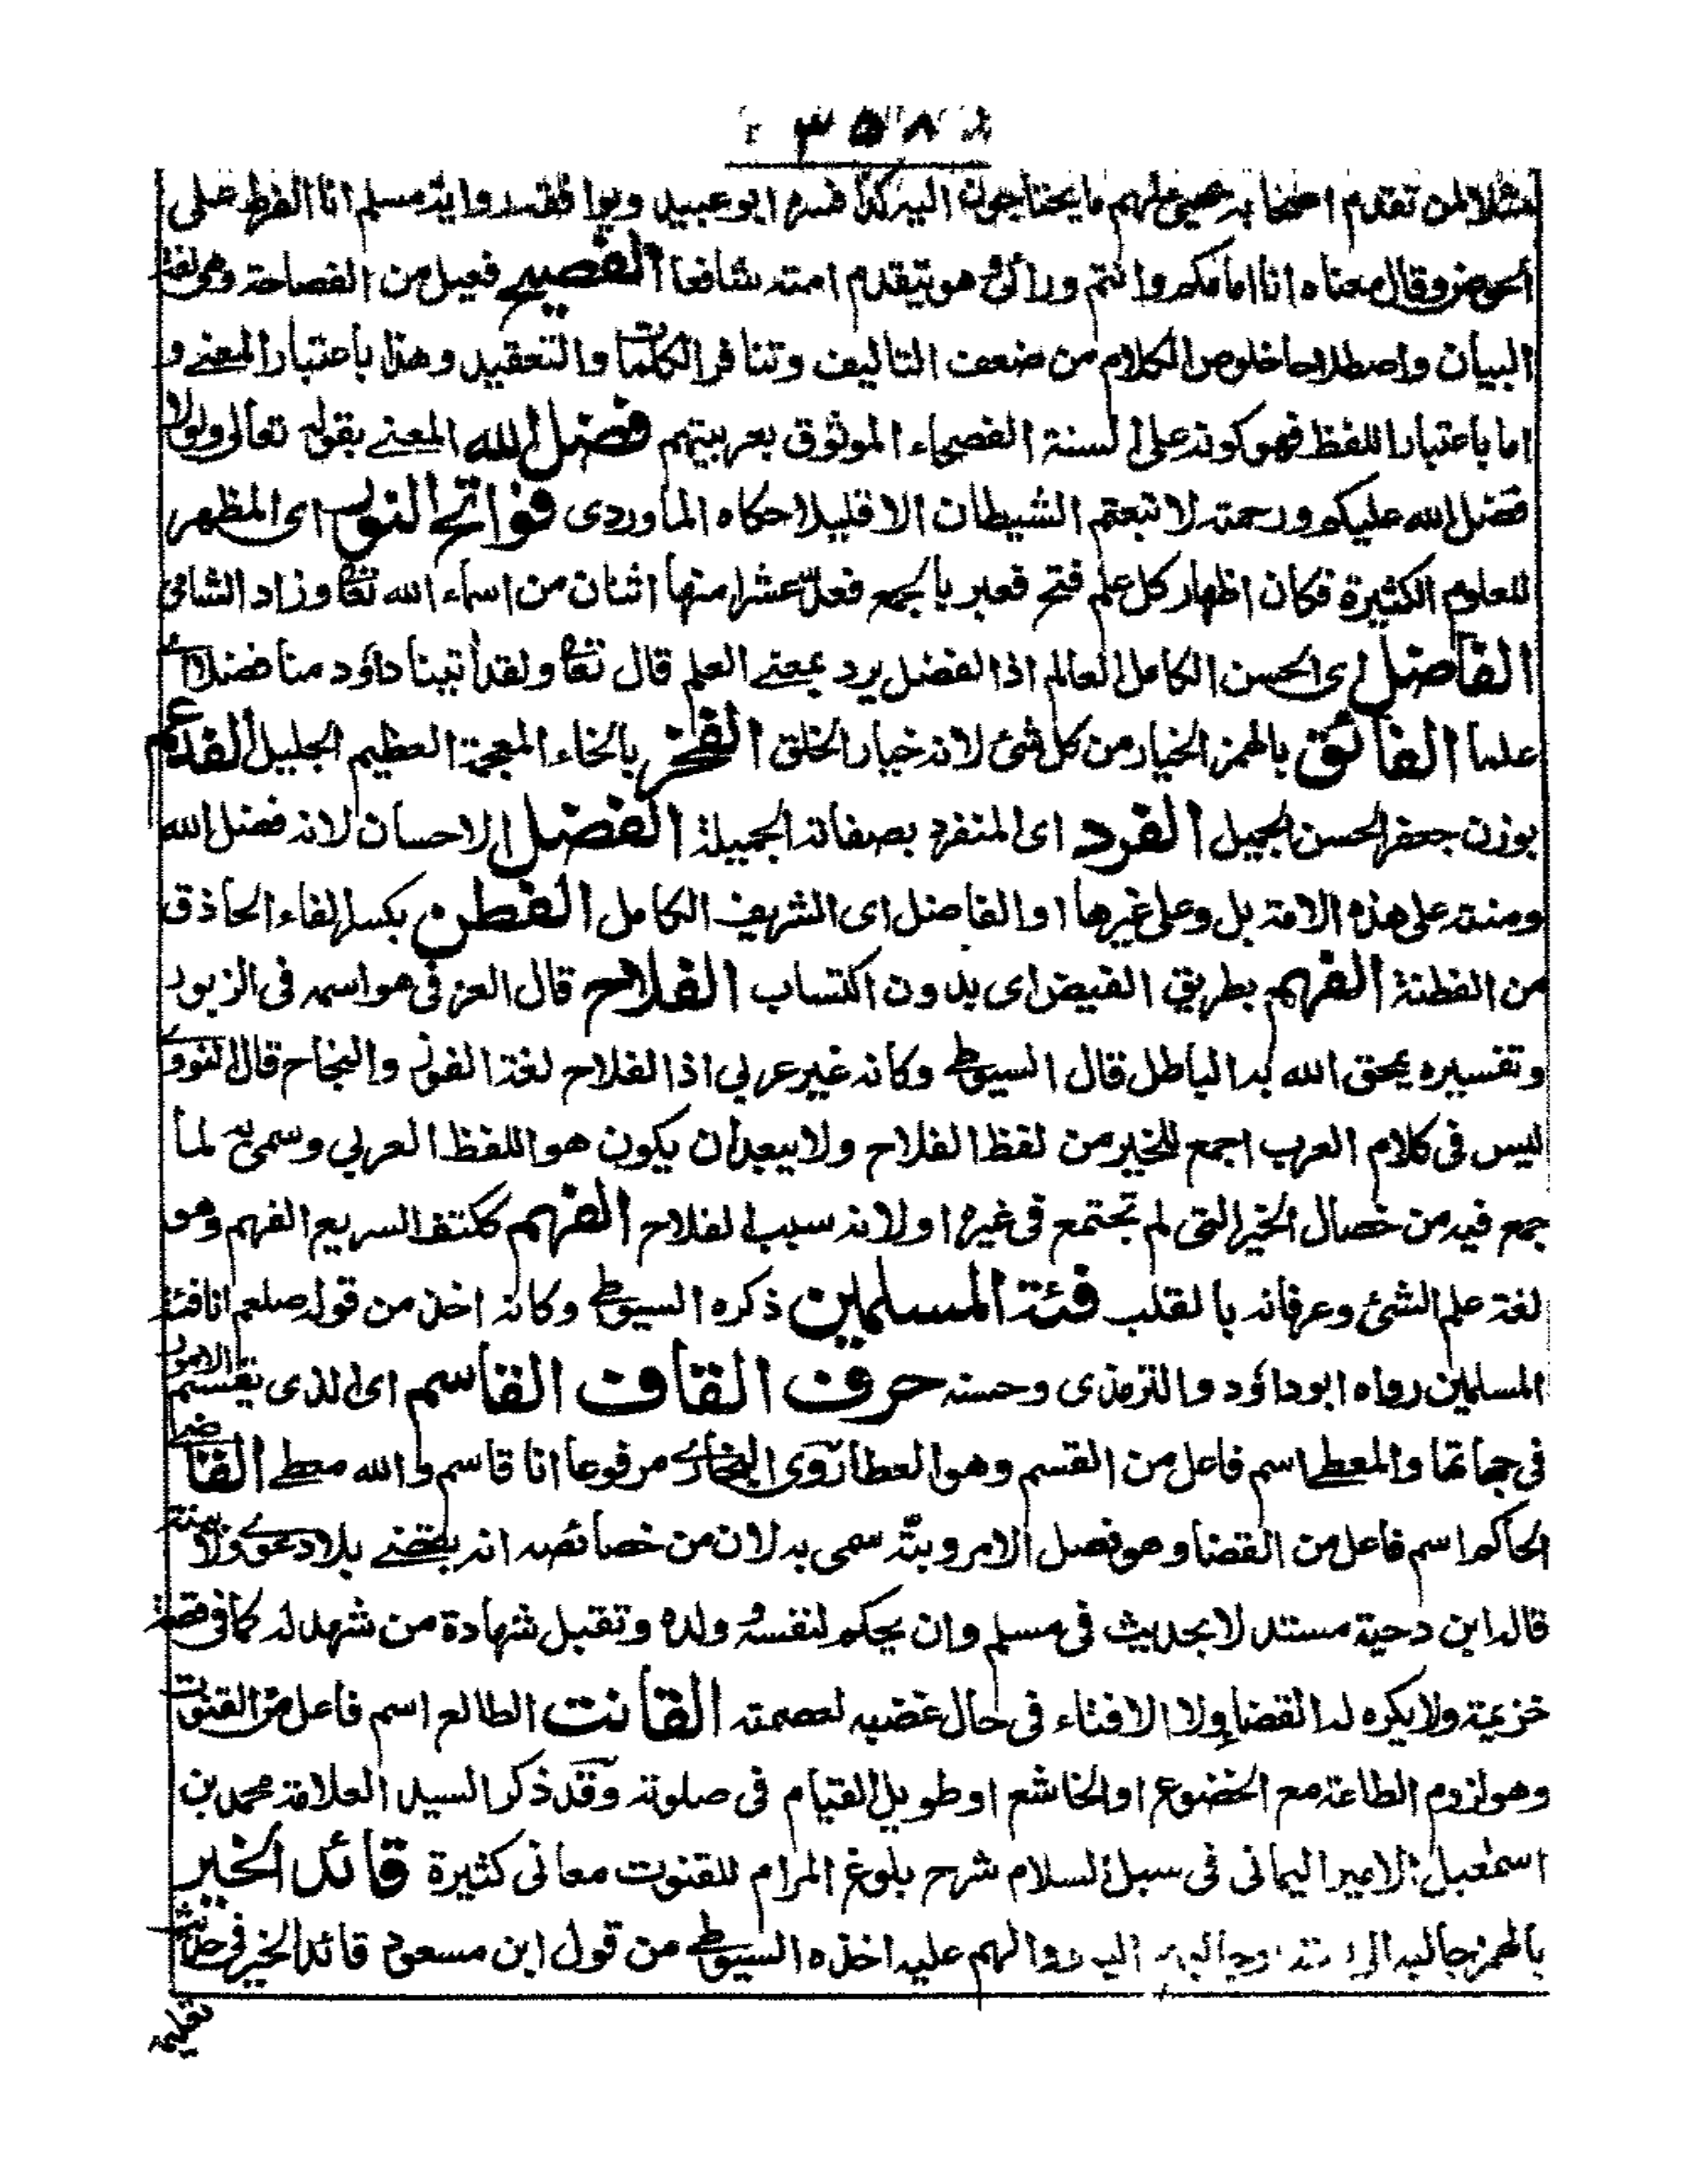 ٣٥٨
مثلا لمن تقدم اصحابه يهيئ لهم ما يحتاجون اليه كذا فسره ابو عبيد ويوافقه رواية مسلم انا الفرط على
الحوض وقال معناه انا امامكم وانتم ورائى هو يتقدم امته شافعا الفصيح فعيل من الفصاحة وهى لغة
البيان واصطلاحا خلوص الكلام من ضعف التاليف وتنافر الكلمات والتعقيد وهذا باعتبار المعنے و
اما باعتبار اللفظ فهو كونه على السنة الفصحاء الموثوق بعربيتهم فضل الله المعنے بقوله تعالى ولولا
فضل الله عليكم ورحمته لا تبعتم الشيطان الا قليلا حكاه الماوردى فواتح النور اى المظهر
للعلوم الكثيرة فكان اظهار كل علم فتح فعبر بالجمع فعلّ عشرا منها اثنان من اسماء الله تعا وزاد الشامى
الفاضل اى الحسن الكامل العالم اذا لفضل يرد بمعنے العلم قال تعا ولقد أتينا داؤد منا فضلا اے
علما الفائق بالهمز الخيار من كل شئ لانه خيار الخلق الفخر بالخاء المعجمة العظيم الجليل الفدغم
بوزن جعفر الحسن الجميل الفرد اى المنفرد بصفاته الجميلة الفضل الاحسان لانه فضل الله
ومنته على هذه الامة بل وعلى غيرها او الفاضل اى الشريف الكامل الفطن بكسر الفاء الحاذق
من الفطنة الفهم بطريق الفيض اى بدون اكتساب الفلاح قال العزفى هو اسمه فى الزبور
وتفسيره يمحق الله به الباطل قال السيوطے وكانه غير عربى اذا لفلاح لغة الفوز والنجاح قال النووے
ليس فى كلام العرب اجمع للخير من لفظ الفلاح ولا يبعد أن يكون هو اللفظ العربي وسمى به لما
جمع فيه من خصال الخير التى لم تجتمع فى غيره او لانه سبب الفلاح الفهم ككتف السريع الفهم وهو
لغة علم الشئ وعرفانه بالقلب فئة المسلمين ذكره السيوطے وكانه اخذ من قوله صلعم انا فئة
المسلمين رواه ابو داؤد والترمذى وحسنه حرف القاف القاسم اى الذى يقسم الامور
فى جهاتها والمعطے اسم فاعل من القسم وهو العطا روى البخارے مرفوعا انا قاسم والله معطے القاضے
الحاكم اسم فاعل من القضا وهو فصل الامر وبتّه سمى به لان من خصائصه انه يقضے بلا دعوے ولا بينة
قاله ابن دحية مستدلا بحديث فى مسلم وان يحكم لنفسه وولده وتقبل شهادة من شهد له كما فى قصة
خزيمة ولا يكره له القضا ولا الافتاء فى حال غضبه لعصمته القانت الطائع اسم فاعل من القنوت
وهو لزوم الطاعة مع الخضوع او الخاشع او طويل القيام فى صلوته وقد ذكر السيد العلامة محمد بن
اسمٰعيل الامير اليمانى فى سبل السلام شرح بلوغ المرام للقنوت معانى كثيرة قائد الخير
بالهمز جالبه الى والهم عليه اخذه السيوطے من قول ابن مسعود قائد الخير فى حديث
تعليمه